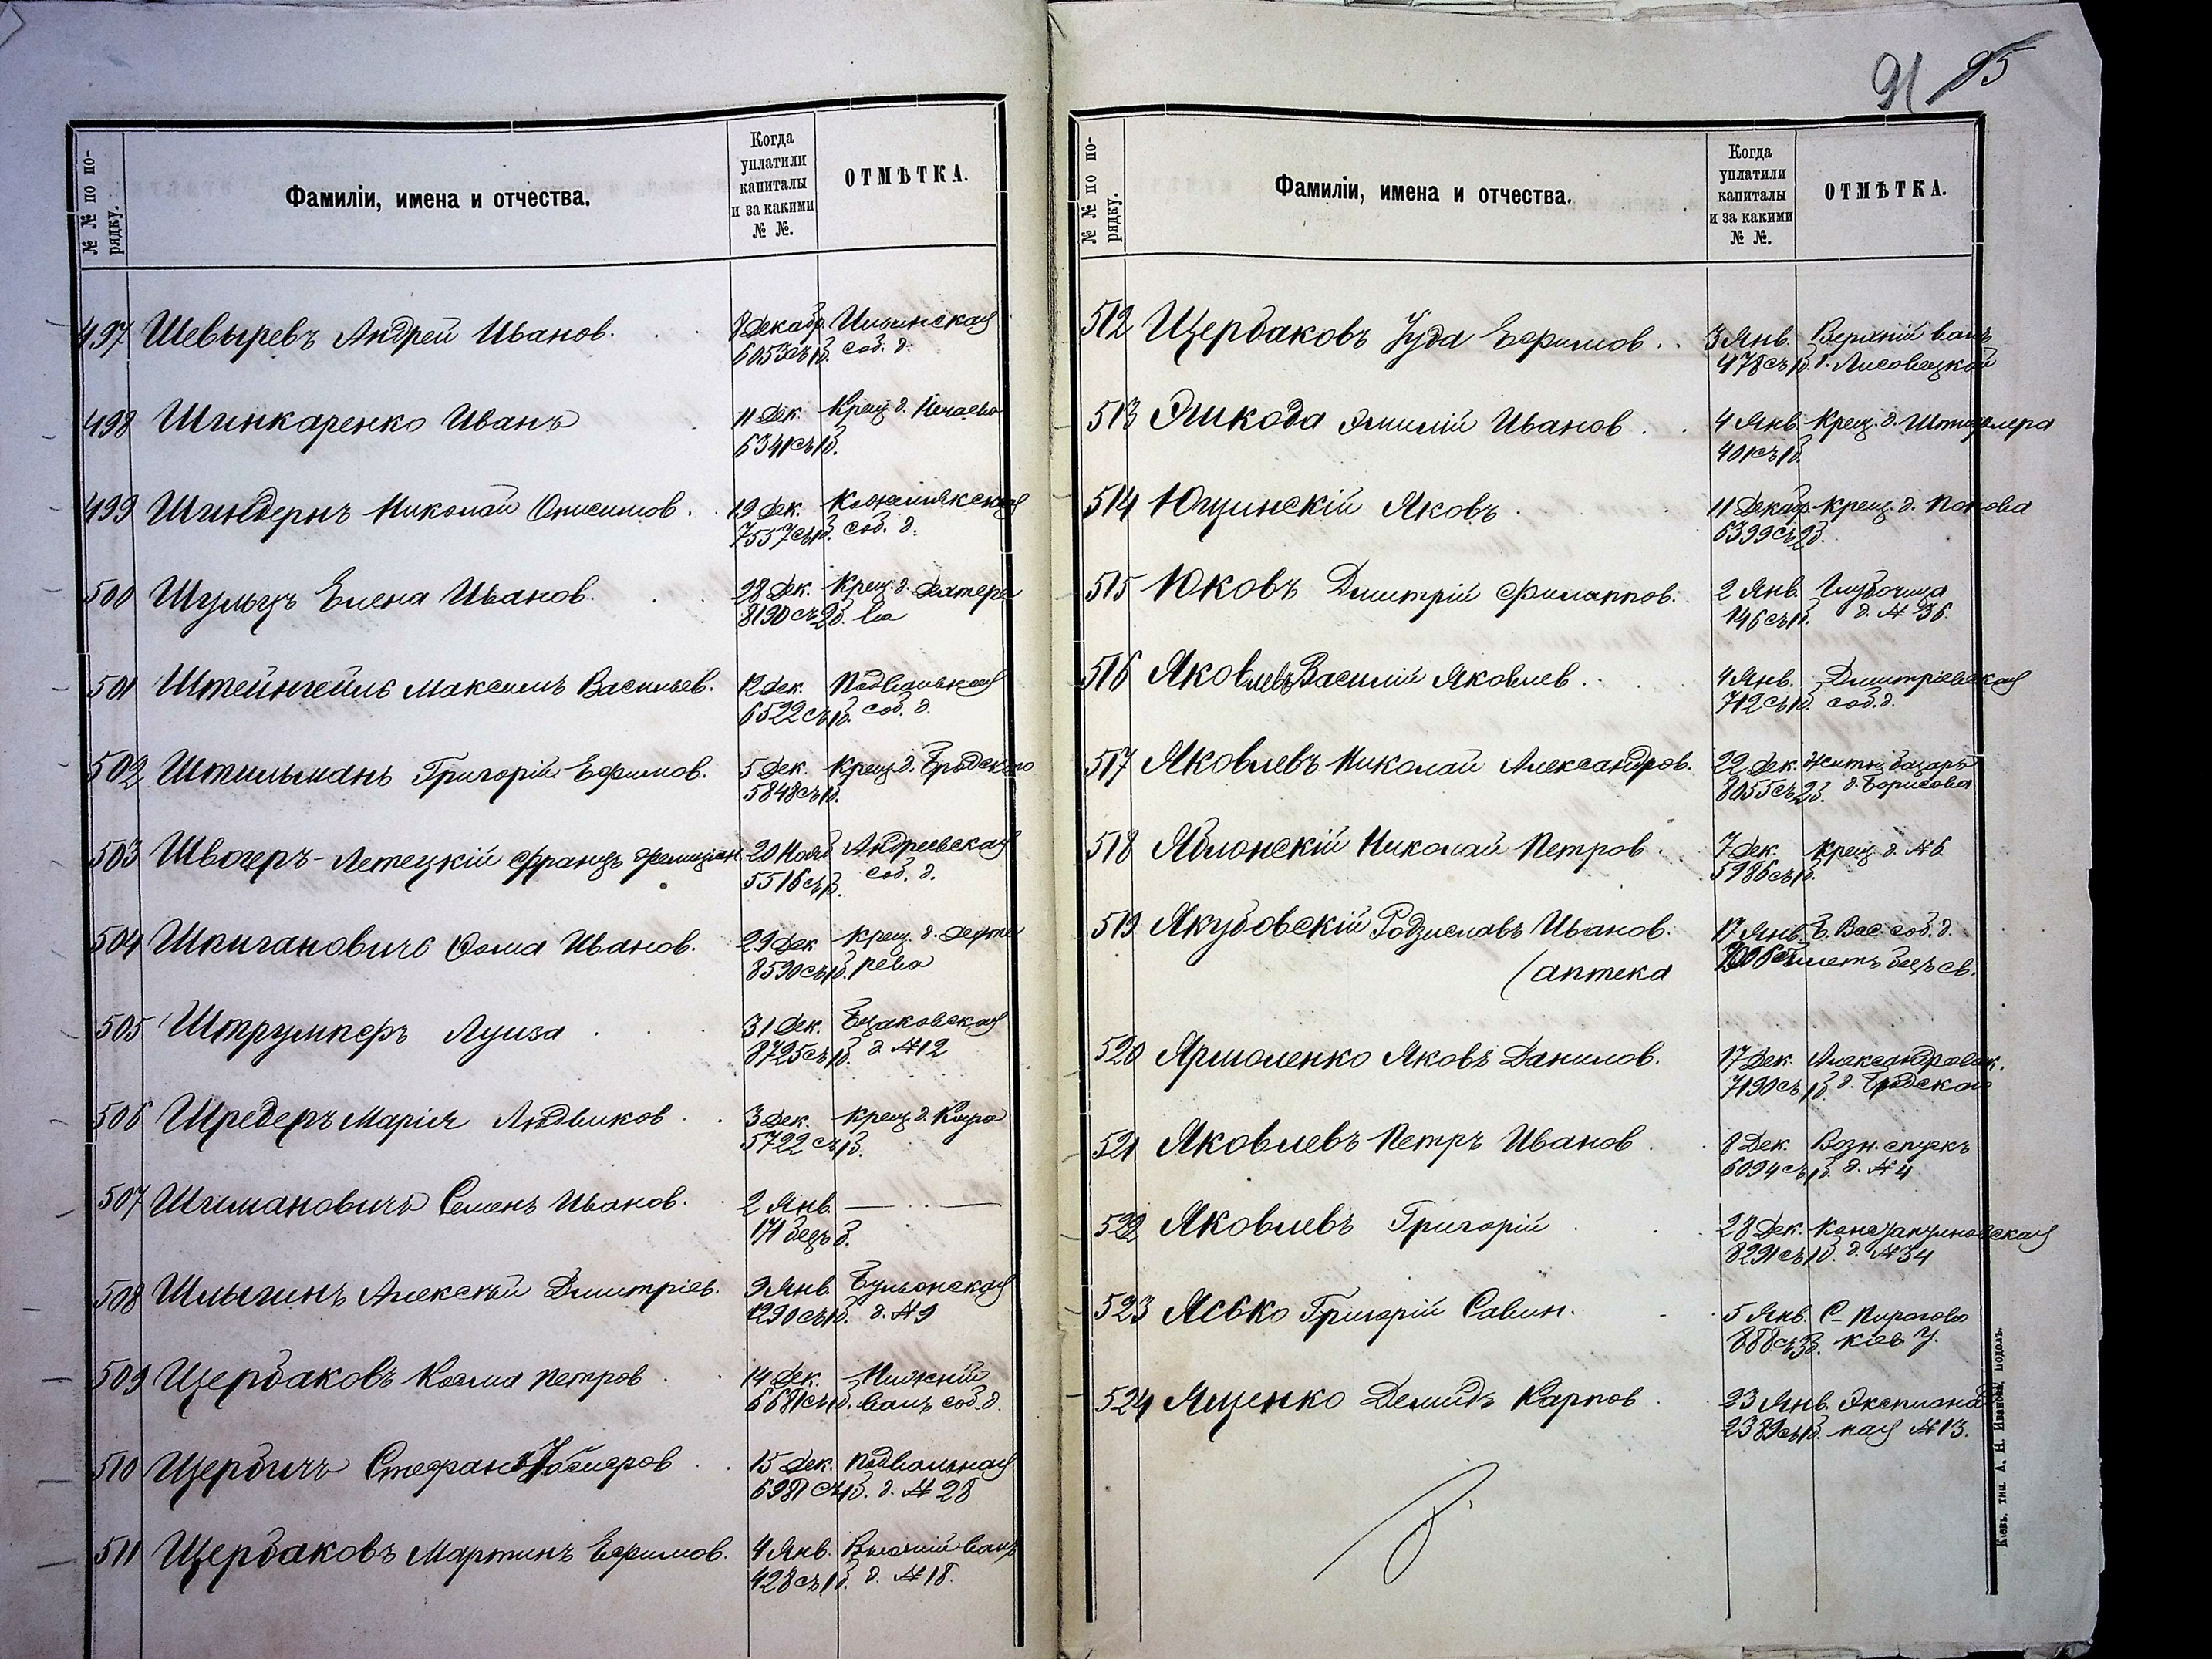 № № по по-
рядку.
Фамиліи, имена и отчества.
Когда
уплатили
капиталы
и за какими
№ №.
ОТМѢТКА.
497 Шевыревъ Андрей Иванов. 8 Декабр.
6053 съ 1 б. соб. д.
498 Шинкаренко Иванъ 11 Дек. Крещ. д.
6341 съ 1 б.
499 Шиндеръ Николай Онисимов. 19 Дек. Кожемякская
7557 съ 1 б. соб. д.
500 Шульцъ Елена Иванов. 28 Дек. Крещ. д. Дехтере
8190 съ 2 б. ва
501 Штейнгейль Максимъ Васильев. 12 Дек. Подвальная
6522 съ 1 б. соб. д.
502 Штильманъ Григорій Ефимов. 5 Дек. Крещ. д. Бродского
5848 съ 1 б.
503 Швогеръ-Летецкій Францъ Фелиціан. 20 Нояб. Андреевская
5516 съ 1 б. соб. д.
504 Шпигановичъ Фома Иванов. 29 Дек. Крещ. д. Дехте
8590 съ 1 б. рева
505 Штрумперъ Луиза 31 Дек.
8725 съ 1 б. д. № 12
506 Шредеръ Марія Людвиков 3 Дек. Крещ. д.
5722 съ 1 б.
507 Шимановичъ Семенъ Иванов. 2 Янв. —
171 безъ б.
508 Шлыгинъ Алексѣй Дмитріев. 9 Янв. Бульонская
1290 съ 1 б. д. № 9
509 Щербаковъ Косма Петров 14 Дек. Нижній
6681 съ 1 б. валъ соб. д.
510 Щербичъ Стефанъ 15 Дек. Подвальная
6981 съ 1 б. д. № 28
511 Щербаковъ Мартинъ Ефимов. 4 Янв. валъ
428 съ 1 б. д. № 18.
91 95
№ № по по-
рядку.
Фамиліи, имена и отчества.
Когда
уплатили
капиталы
и за какими
№ №.
ОТМѢТКА.
512 Щербаковъ Іуда Ефимов. 3 Янв. Верхній валъ
478 съ 1 б. д. Лисовецкой
513 Эмилій Иванов 4 Янв. Крещ. д.
401 съ 1 б.
514 Ющинскій Яковъ 11 Декабр. Крещ. д. Попова
6399 съ 2 б.
515 Юковъ Дмитрій Филиппов. 2 Янв. Глубочица
146 съ 1 б. д. № 36.
516 Яковлевъ Василій Яковлев 4 Янв. Дмитріевская
712 съ 1 б. соб. д.
517 Яковлевъ Николай Александров. 22 Дек. Житн. базаръ
8055 съ 2 б. д. Борисова
518 Яблонскій Николай Петров 7 Дек. Крещ. д. № 6
5986 съ 1 б.
519 Якубовскій Родиславъ Иванов. 17 Янв. Б. Вас. соб. д.
(аптека безъ св.
520 Ярмоленко Яковъ Данилов. 17 Дек. Александровск.
7190 съ 1 б. д. Бродской
521 Яковлевъ Петръ Иванов 8 Дек. Возн. спускъ
6094 съ 1 б. д. № 4
522 Яковлевъ Григорій 28 Дек.
8291 съ 1 б. д. № 34
523 Ясько Григорій Савин. 5 Янв. С- Пирогово
888 съ 3 б. Кіев У.
524 Ященко Демидъ Карпов 23 Янв. Эспланад
2389 съ 1 б. ная № 13.
Кіевъ, тип. А. Н. Иванова, Подолъ.